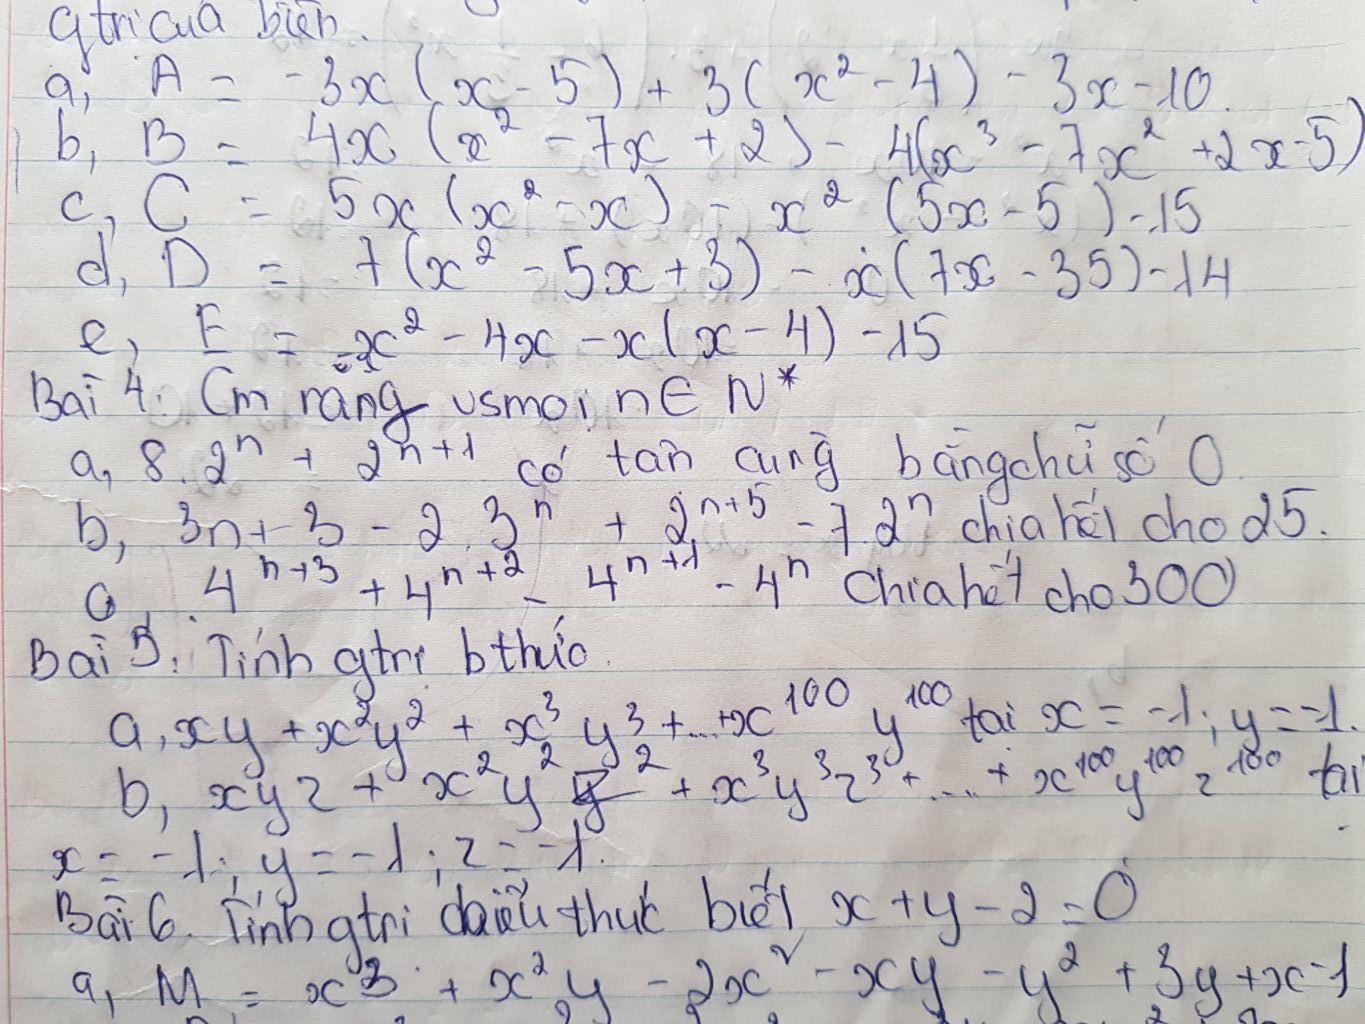 gtri của biến.
a, A = -3x (x - 5) + 3( x² - 4) - 3x - 10.
b, B = 4x (x² - 7x + 2) - 4(x³ - 7x² + 2x - 5)
c, C = 5x (x² - x) - x² (5x - 5) - 15
d, D = 7 (x² - 5x + 3) - x (7x - 35) - 14
e, E = x² - 4x - x (x - 4) - 15
Bài 4. Cm rằng vs mọi n ∈ N*
a, 8.2ⁿ + 2ⁿ⁺¹ có tận cùng bằng chữ số 0
b, 3n + 3 - 2.3ⁿ + 2ⁿ⁺⁵ - 7.2ⁿ chia hết cho 25.
c, 4ⁿ⁺³ + 4ⁿ⁺² - 4ⁿ⁺¹ - 4ⁿ chia hết cho 300
Bài 5. Tính gtri b thức.
a, xy + x²y² + x³y³ + ... + x¹⁰⁰ y¹⁰⁰ tại x = -1; y = -1.
b, xyz + x²y²z² + x³y³z³ + .... + x¹⁰⁰y¹⁰⁰z¹⁰⁰ tại
x = -1; y = -1; z = -1.
Bài 6. Tính gtri thức biết x + y - 2 = 0
a, M = x³ + x²y - 2x² - xy - y² + 3y + x - 1